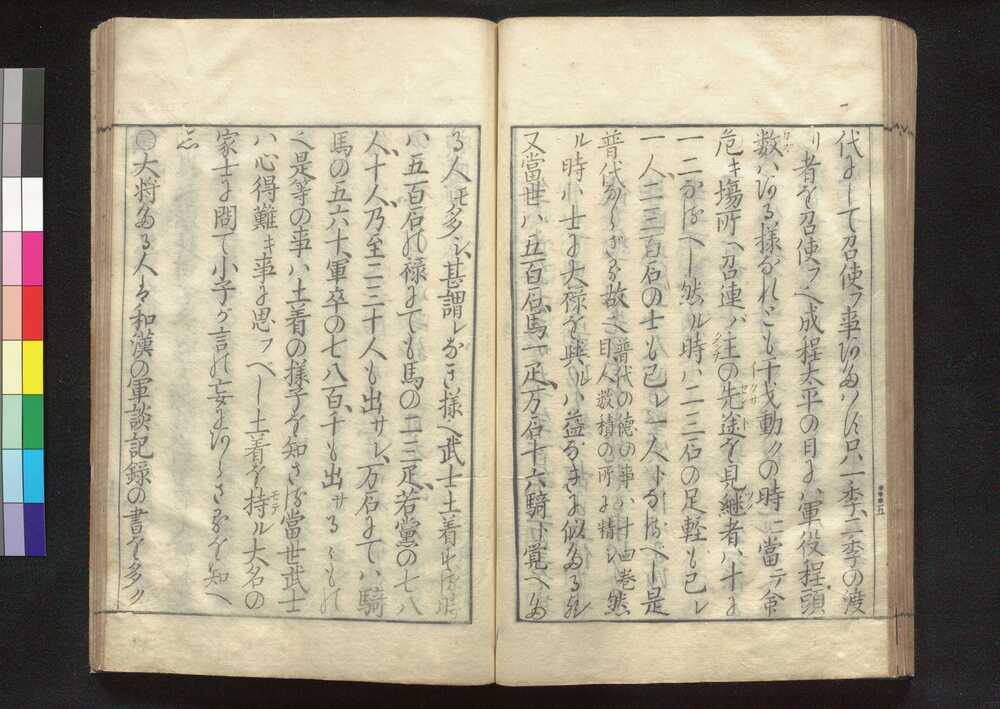 代にして召使フ事ならハす只一季二季の渡
リ者を召使フ〻成程太平の日にハ軍役程頭
数ハある様なれとも干戈動クの時ニ當テ命
危キ場所ヘ召連ハ主の先途を見継者ハ十に
一二なるへし然ル時ハ二三石の足軽も己レ
一人二三百石の士も己レ一人ト なるべし是
普代なくさる故也 普代の徳の事ハ十四巻然
目人数積の所に精し
ル時ハ士に大禄を與ルハ益なきに似たるル
又當世ハ五百石馬一疋万石十六騎ト覚へた
る人モ多シ甚謂レなき様〻武士土着せは
ハ五百石の禄にても馬の二三疋若黨の七八
人十人乃至二三十人も出サレ万石にてハ騎
馬の五六十軍卒の七八百千も出サるゝもの
〻是等の事ハ土着の様子を知さる當世武士
ハ心得難キ事に思フへし土着を持ル大名の
家士に問て小子が言の妄にあらさるを知へ
し
大将たる人ハ和漢の軍談記録の書を多ク